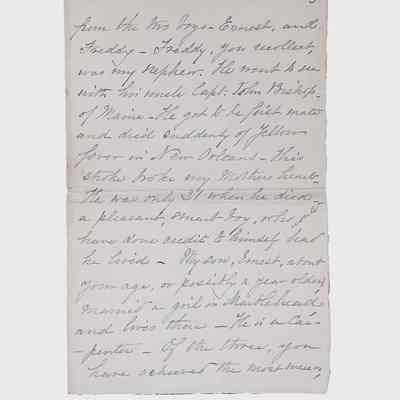 from the two boys - Ernest, and
Freddy - Freddy, you recollect,
was my nephew. He went to sea
with his uncle Capt. John Bishop -
of Maine - He got to be first mate
and died suddenly of Yellow
fever in New Orleans - This
stroke broke my Mothers heart -
He was only 21 when he died -
a pleasant, smart boy, who
have done credit to himself had
he lived - My son, Ernest, about
your age, or possibly a year older,
married a girl in Marblehead
and lives there - He is a Car-
-penter - Of the three, you
have achieved the most